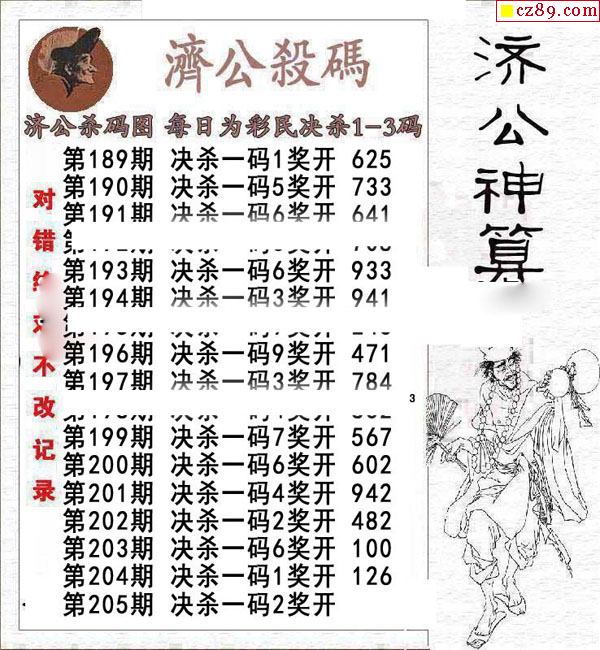 cz89.com
濟公殺碼
济公杀码图 每日为彩民决杀1-3码
第189期 决杀一码1奖开 625
第190期 决杀一码5奖开 733
第191期 决杀一码6奖开 641
第193期 决杀一码6奖开 933
第194期 决杀一码3奖开 941
第196期 决杀一码9奖开 471
第197期 决杀一码3奖开 784
3
第199期 决杀一码7奖开 567
第200期 决杀一码6奖开 602
第201期 决杀一码4奖开 942
第202期 决杀一码2奖开 482
第203期 决杀一码6奖开 100
第204期 决杀一码1奖开 126
第205期 决杀一码2奖开
对错
不改记录
济公神算